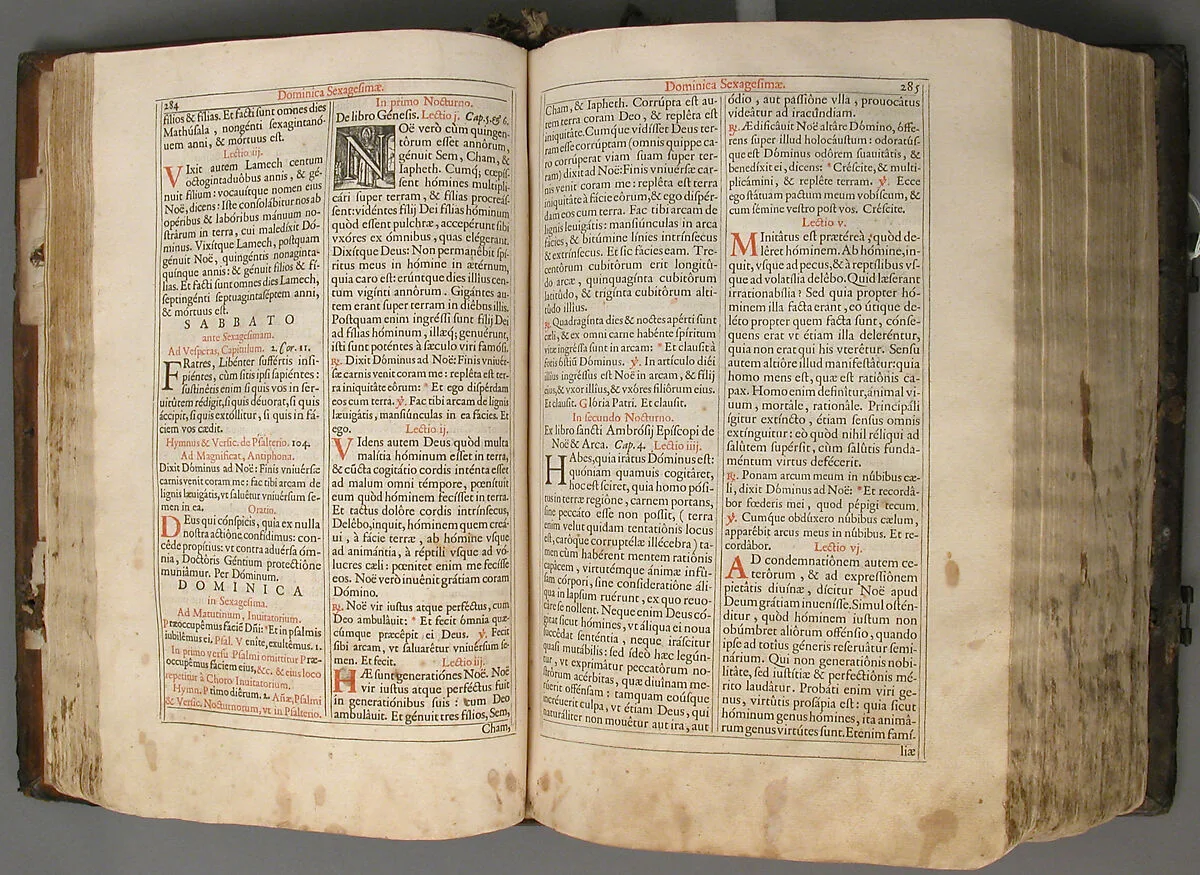 284
Dominica Sexagesimæ.
filios & filias. Et facti sunt omnes dies
Mathúsala, nongénti sexagintanó-
uem anni, & mórtuus est.
Lectio iij.
VIxit autem Lamech centum
octogintaduóbus annis, & gé-
nuit filium: vocauítque nomen eius
Noë, dicens: Iste consolábitur nos ab
opéribus & labóribus mánuum no-
strárum in terra, cui maledíxit Dó-
minus. Vixítque Lamech, postquam
génuit Noë, quingéntis nonaginta-
quínque annis: & génuit filios & fí-
lias. Et facti sunt omnes dies Lamech,
septingénti septuagintaséptem anni,
& mórtuus est.
SABBATO
ante Sexagesimam.
Ad Vesperas, Capitulum. 2. Cor. 11.
FRatres, Libénter suffértis insi-
piéntes, cùm sitis ipsi sapiéntes:
sustinétis enim si quis vos in ser-
uitútem rédigit, si quis déuorat, si quis
áccipit, si quis extóllitur, si quis in fá-
ciem vos cædit.
Hymnus & Versic. de Psalterio. 104.
Ad Magnificat, Antiphona.
Dixit Dóminus ad Noë: Finis vniuérsæ
carnis venit coram me: fac tibi arcam de
lignis læuigátis, vt saluétur vniuérsum se-
men in ea.
Oratio.
DEus qui cónspicis, quia ex nulla
nostra actióne confídimus: con-
céde propítius: vt contra aduérsa óm-
nia, Doctóris Géntium protectióne
muniámur. Per Dóminum.
DOMINICA
in Sexagesima.
Ad Matutinum, Inuitatorium.
Præoccupémus fáciē Dñi: * Et in psalmis
iubilémus ei. Psal. Veníte, exultémus. 1.
In primo versu Psalmi omittitur Præ-
occupémus fáciem eius, &c. & eius loco
repetitur à Choro Inuitatorium.
Hymn. Primo diérum. 2. Añæ, Psalmi
& Versic. Nocturnorum, vt in Psalterio.
In primo Nocturno.
De libro Génesis. Lectio j. Cap. 5. & 6.
NOë verò cùm quingen-
tórum esset annórum,
génuit Sem, Cham, &
Iapheth. Cumq; cœpís-
sent hómines multipli-
cári super terram, & filias procreás-
sent: vidéntes filij Dei filias hóminum
quòd essent pulchræ, accepérunt sibi
vxóres ex ómnibus, quas elégerant.
Dixítque Deus: Non permanébit spí-
ritus meus in hómine in ætérnum,
quia caro est: erúntque dies illíus cen-
tum vigínti annórum. Gigántes au-
tem erant super terram in diébus illis.
Postquam enim ingréssi sunt filij Dei
ad filias hóminum, illæq; genuérunt,
isti sunt poténtes à sæculo viri famósi.
℟. Dixit Dóminus ad Noë: Finis vniuér-
sæ carnis venit coram me: repléta est ter-
ra iniquitáte eórum: * Et ego dispérdam
eos cum terra. ℣. Fac tibi arcam de lignis
læuigátis, mansiúnculas in ea fácies. Et
ego.
Lectio ij.
VIdens autem Deus quòd multa
malítia hóminum esset in terra,
& cūcta cogitátio cordis inténta esset
ad malum omni témpore, pœnítuit
eum quòd hóminem fecísset in terra.
Et tactus dolóre cordis intrínsecus,
Delébo, inquit, hóminem quem creá-
ui, à fácie terræ, ab hómine vsque
ad animántia, à réptili vsque ad vó-
lucres cæli: pœnitet enim me fecísse
eos. Noë verò inuénit grátiam coram
Dómino.
℟. Noë vir iustus atque perféctus, cum
Deo ambuláuit: * Et fecit ómnia quæ-
cúmque præcépit ei Deus. ℣. Fecit
sibi arcam, vt saluarétur vniuérsum se-
men. Et fecit.
Lectio iij.
HÆ sunt generatiónes Noë. Noë
vir iustus atque perféctus fuit
in generatiónibus suis: cum Deo
ambuláuit. Et génuit tres filios, Sem,
Cham,
Dominica Sexagesimæ.
285
Cham, & Iapheth. Corrúpta est au-
tem terra coram Deo, & repléta est
iniquitáte. Cumque vidísset Deus ter-
ram esse corrúptam (omnis quippe ca-
ro corrúperat viam suam super ter-
ram) dixit ad Noë: Finis vniuérsæ car-
nis venit coram me: repléta est terra
iniquitáte à fácie eórum, & ego dispér-
dam eos cum terra. Fac tibi arcam de
lignis leuigátis: mansiúnculas in arca
fácies, & bitúmine línies intrínsecus
& extrínsecus. Et sic fácies eam. Tre-
centórum cubitórum erit longitú-
do arcæ, quinquagínta cubitórum
latitúdo, & trigínta cubitórum alti-
túdo illíus.
℟. Quadragínta dies & noctes apérti sunt
cæli, & ex omni carne habénte spíritum
vitæ ingréssa sunt in arcam: * Et clausit à
foris óstiū Dóminus. ℣. In artículo diéi
illíus ingréssus est Noë in arcam, & filij
eius, & vxor illíus, & vxóres filiórum eius.
Et clausit. Glória Patri. Et clausit.
In secundo Nocturno.
Ex libro sancti Ambrósij Epíscopi de
Noë & Arca. Cap. 4. Lectio iiij.
HAbes, quia irátus Dóminus est:
quóniam quamuis cogitáret,
hoc est sciret, quia homo pósi-
tus in terræ regióne, carnem portans,
sine peccáto esse non possit, (terra
enim velut quidam tentatiónis locus
est, caróque corruptélæ illécebra) ta-
men cùm habérent mentem ratiónis
capácem, virtutémque ánimæ infú-
sam córpori, sine consideratióne áli-
qua in lapsum ruérunt, ex quo reuo-
cáre se nollent. Neque enim Deus có-
gitat sicut hómines, vt áliqua ei noua
succédat senténtia, neque iráscitur
quasi mutábilis: sed ideò hæc legún-
tur, vt exprimátur peccatórum no-
strórum acérbitas, quæ diuínam me-
rúerit offénsam: tamquam eoúsque
incréuerit culpa, vt étiam Deus, qui
naturáliter non mouétur aut ira, aut
ódio, aut passióne vlla, prouocátus
videátur ad iracúndiam.
℟. Ædificáuit Noë altáre Dómino, ófe-
rens super illud holocáustum: odoratús-
que est Dóminus odórem suauitátis, &
benedíxit ei, dicens: * Créscite, & multi-
plicámini, & repléte terram. ℣. Ecce
ego státuam pactum meum vobíscum, &
cum sémine vestro post vos. Créscite.
Lectio v.
MInitátus est prætéreà, quòd de-
léret hóminem. Ab hómine, in-
quit, vsque ad pecus, & à reptílibus vs-
que ad volatília delébo. Quid læserant
irrationabília? Sed quia propter hó-
minem illa facta erant, eo útique de-
léto propter quem facta sunt, cónse-
quens erat vt étiam illa deleréntur,
quia non erat qui his vterétur. Sensu
autem altióre illud manifestátur: quia
homo mens est, quæ est ratiónis ca-
pax. Homo enim definítur, ánimal vi-
uum, mortále, rationále. Principáli
ígitur extíncto, étiam sensus omnis
extínguitur: eò quòd nihil réliqui ad
salútem supérsit, cùm salútis funda-
méntum virtus defécerit.
℟. Ponam arcum meum in núbibus cæ-
li, dixit Dóminus ad Noë: * Et recordá-
bor fœderis mei, quod pépigi tecum.
℣. Cumque obdúxero núbibus cælum,
apparébit arcus meus in núbibus. Et re-
cordábor.
Lectio vj.
AD condemnatiónem autem ce-
terórum, & ad expressiónem
pietátis diuínæ, dícitur Noë apud
Deum grátiam inuenísse. Simul ostén-
ditur, quòd hóminem iustum non
obúmbret aliórum offénsio, quando
ipse ad totíus géneris reseruátur semi-
nárium. Qui non generatiónis nobi-
litáte, sed iustítiæ & perfectiónis mé-
rito laudátur. Probáti enim viri ge-
nus, virtútis prosápia est: quia sicut
hóminum genus hómines, ita animá-
rum genus virtútes sunt. Etenim famí-
liæ